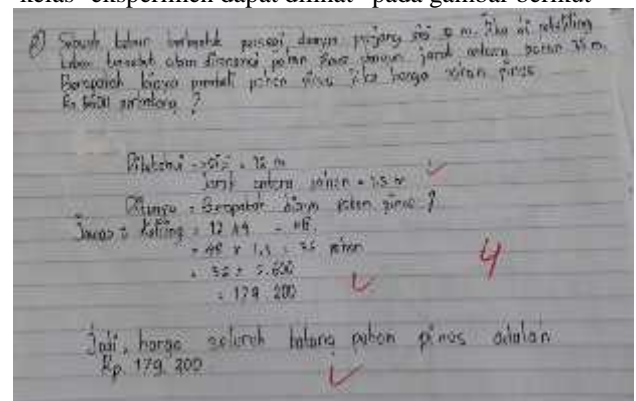 kelas eksperimen dapat dilihat pada gambar berikut
2) Sebuah kebun berbentuk persegi dengan panjang sisi m. Jika di sekeliling
kebun tersebut akan ditanami pohon pinus dengan jarak antara pohon m.
Berapakah biaya membeli pohon pinus jika harga pinus
Rp perbatang ?
Diketahui sisi = 12 m
Jarak antara pohon = 1.5 m
Ditanya = Berapakah biaya pohon pinus ?
Jawab : Keliling = 12 x 4 = 48
= 48 x 1,5 = pohon
= x 5.600
= 179 200
4
Jadi, harga seluruh batang pohon pinus adalah
Rp. 179. 200